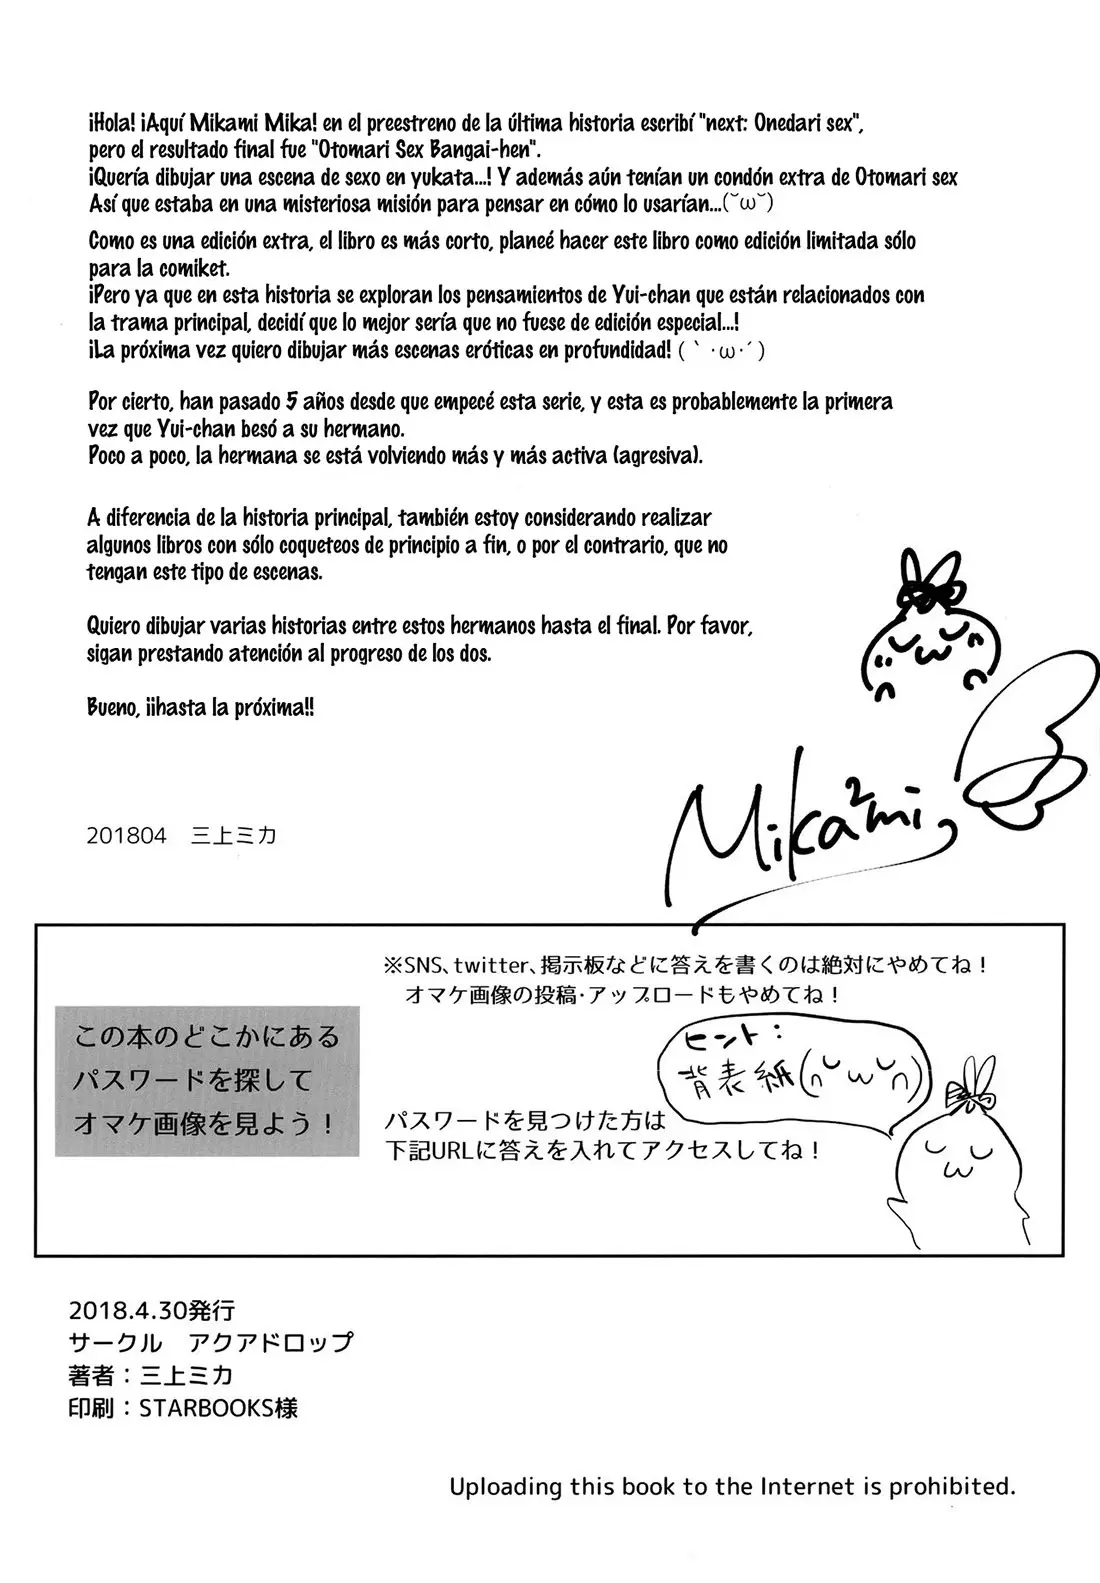 ¡Hola! ¡Aquí Mikami Mika! en el preestreno de la última historia escribí "next: Onedari sex",
pero el resultado final fue "Otomari Sex Bangai-hen".
¡Quería dibujar una escena de sexo en yukata...! Y además aún tenían un condón extra de Otomari sex
Así que estaba en una misteriosa misión para pensar en cómo lo usarían...(˘ω˘)
Como es una edición extra, el libro es más corto, planeé hacer este libro como edición limitada sólo
para la comiket.
¡Pero ya que en esta historia se exploran los pensamientos de Yui-chan que están relacionados con
la trama principal, decidí que lo mejor sería que no fuese de edición especial...!
¡La próxima vez quiero dibujar más escenas eróticas en profundidad! (｀･ω･´)
Por cierto, han pasado 5 años desde que empecé esta serie, y esta es probablemente la primera
vez que Yui-chan besó a su hermano.
Poco a poco, la hermana se está volviendo más y más activa (agresiva).
A diferencia de la historia principal, también estoy considerando realizar
algunos libros con sólo coqueteos de principio a fin, o por el contrario, que no
tengan este tipo de escenas.
Quiero dibujar varias historias entre estos hermanos hasta el final. Por favor,
sigan prestando atención al progreso de los dos.
Bueno, ¡¡hasta la próxima!!
Mika²mi
201804　三上ミカ
※SNS、twitter、掲示板などに答えを書くのは絶対にやめてね！
オマケ画像の投稿・アップロードもやめてね！
この本のどこかにある
パスワードを探して
オマケ画像を見よう！
ヒント：
背表紙(∩˘ω˘∩)
パスワードを見つけた方は
下記URLに答えを入れてアクセスしてね！
2018.4.30発行
サークル　アクアドロップ
著者：三上ミカ
印刷：STARBOOKS様
Uploading this book to the Internet is prohibited.